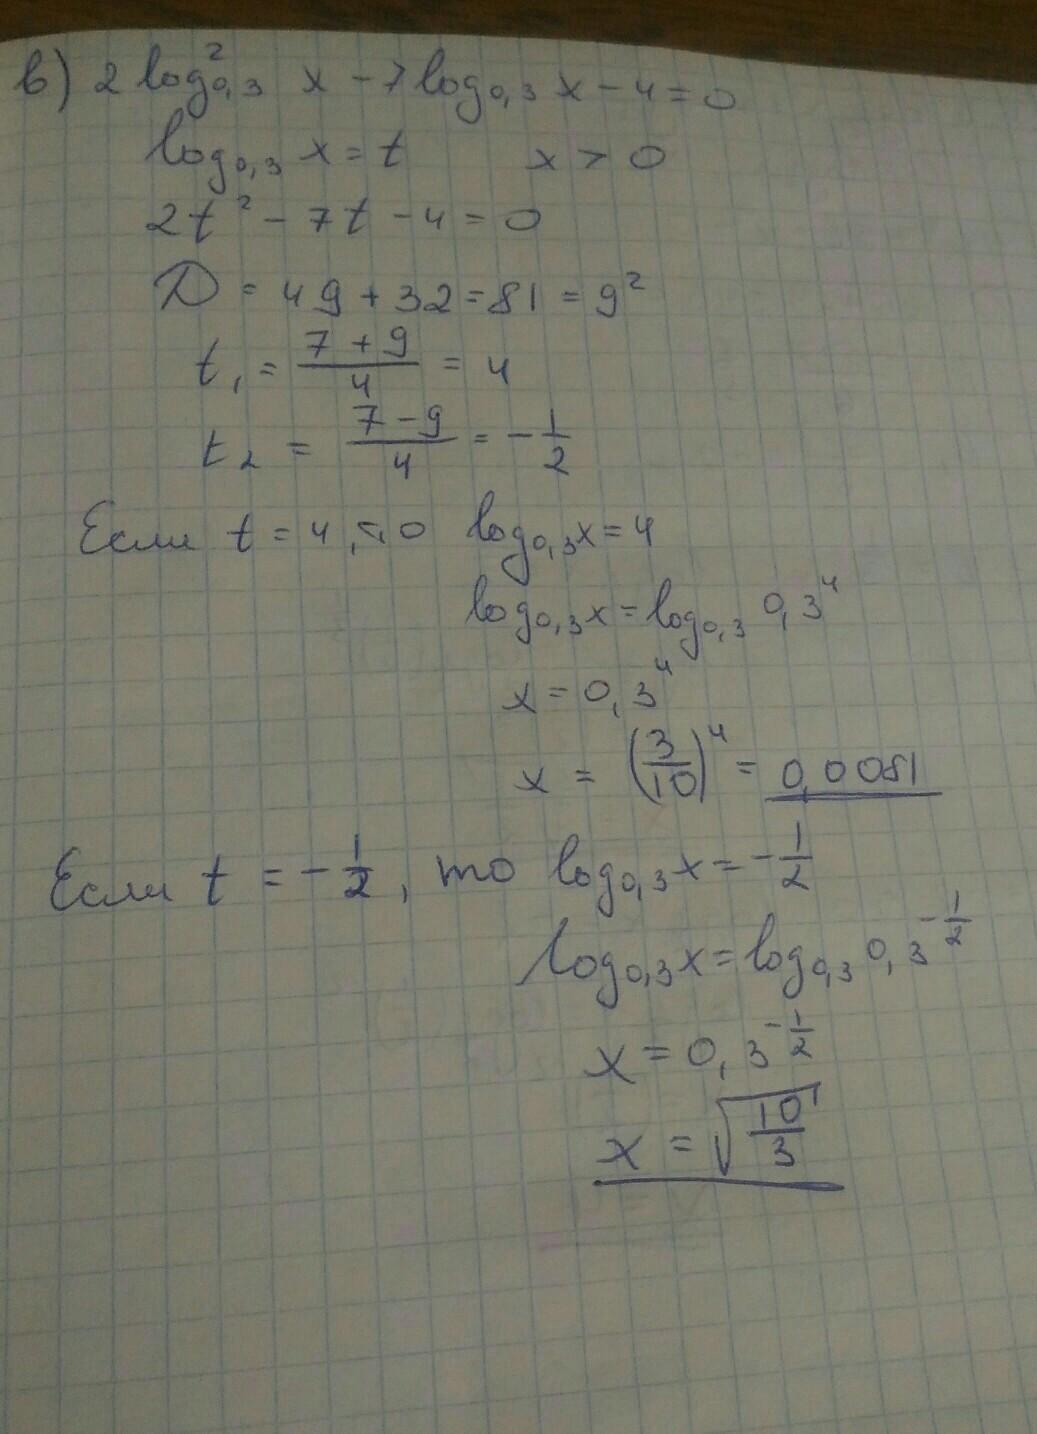 в) 2 log²₀,₃ x − 7 log₀,₃ x − 4 = 0
log₀,₃ x = t x > 0
2t² − 7t − 4 = 0
D = 49 + 32 = 81 = 9²
t₁ = (7 + 9)/4 = 4
t₂ = (7 − 9)/4 = −1/2
Если t = 4, то log₀,₃ x = 4
log₀,₃ x = log₀,₃ 0,3⁴
x = 0,3⁴
x = (3/10)⁴ = 0,0081
Если t = −1/2, то log₀,₃ x = −1/2
log₀,₃ x = log₀,₃ 0,3^(−1/2)
x = 0,3^(−1/2)
x = √(10/3)